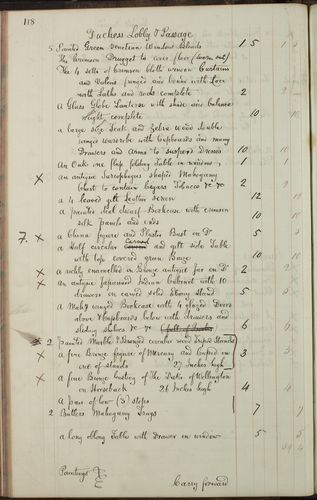 118
Duchess Lobby & Passage
5 Painted Green Venetian Window Blinds 1 5
The Crimson Drugget to cover floor (worn out)
The 4 setts of crimson cloth window Curtains
and Valens fringed and bound with Lace
with Laths and rods complete 2
a Glass Globe Lantern with shade and balance
weight, complete 10
a large size Teak and Zebra wood double
winged wardrobe with Cupboards and many
Drawers and Arms to suspend Dresses 10
An Oak one flap folding Table in window, 1
x an antique Sarcophagus shaped Mahogany
Chest to contain Cigars Tobacco &c &c 2
a 4 leaved gilt leather screen 12
a painted deal dwarf Bookcase with crimson
silk panels and ends 10
7. x a China figure and Plaster Bust on Do 5
a Half circular Carved and gilt side Table
with top covered green Baize 10
x a richly enamelled on Bronze antique Jar on Do 2
x an antique Japanned Indian Cabinet with 10
drawers on carved solid Ebony stand 5
a Mahy winged Bookcase with 4 glazed Doors
above & Cupboards below with Drawers and
sliding shelves &c &c 6
2 painted Marble & Bronzed circular wood Tripod Stands
x a fine Bronze figure of Mercury and
27 Inches high 3
x a fine Bronze Casting of The Duke of Wellington
on Horseback 26 Inches high 4
a pair of low (3) steps
2 Butlers Mahogany Trays 7
a long oblong Table with Drawer in window 5
Paintings
Carry forward